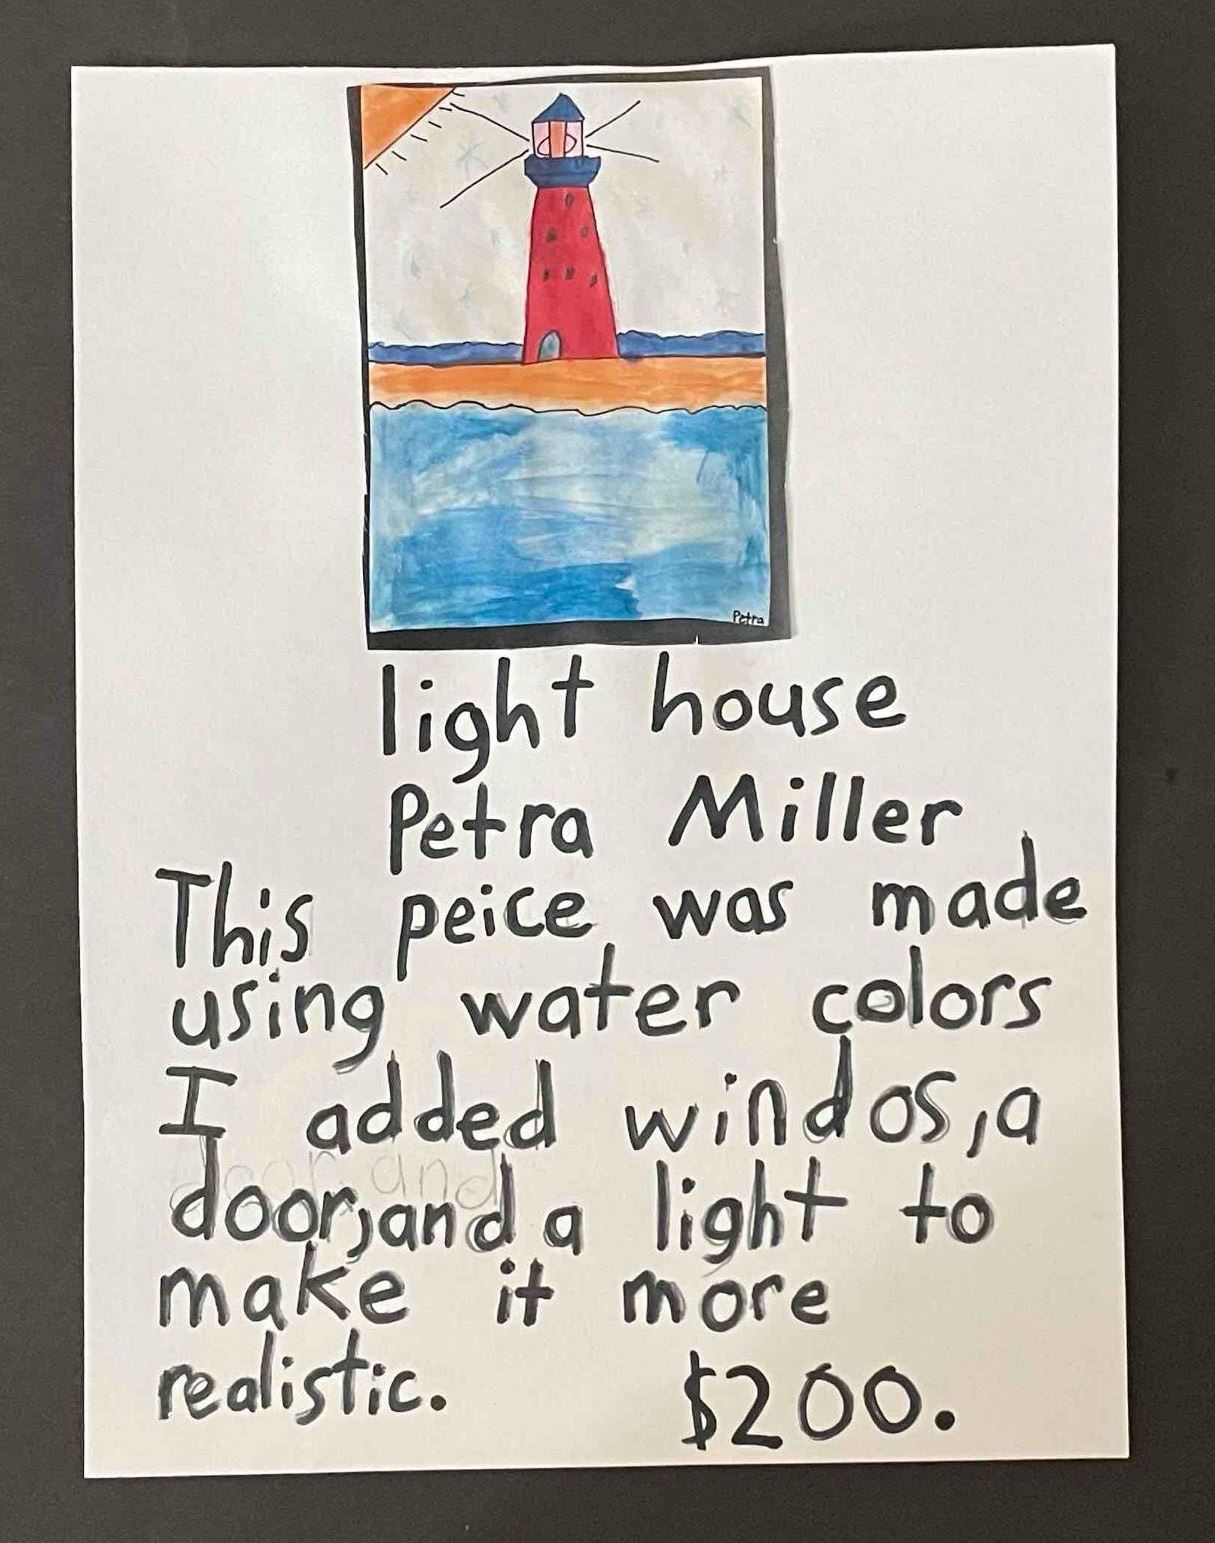 Petra
light house
Petra Miller
This peice was made
using water colors
I added windos, a
door, and a light to
make it more
realistic. $200.